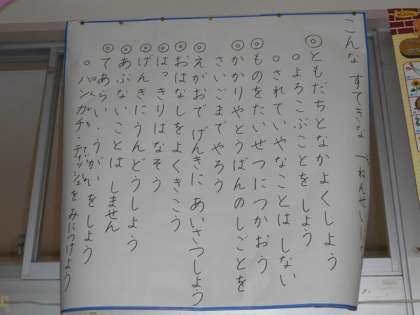 こんな すてきな 1ねんせいに
◎ともだちとなかよくしよう
○よろこぶことをしよう
○されていやなことはしない
◎ものをたいせつにつかおう
◎かかりやとうばんのしごとを
さいごまでやろう
◎えがおでげんきにあいさつしよう
◎おはなしをよくきこう
◎はっきりはなそう
◎げんきにうんどうしよう
◎あぶないことはしません
◎てあらい・うがいをしよう
○ハンカチ・ティッシュをみにつけよう